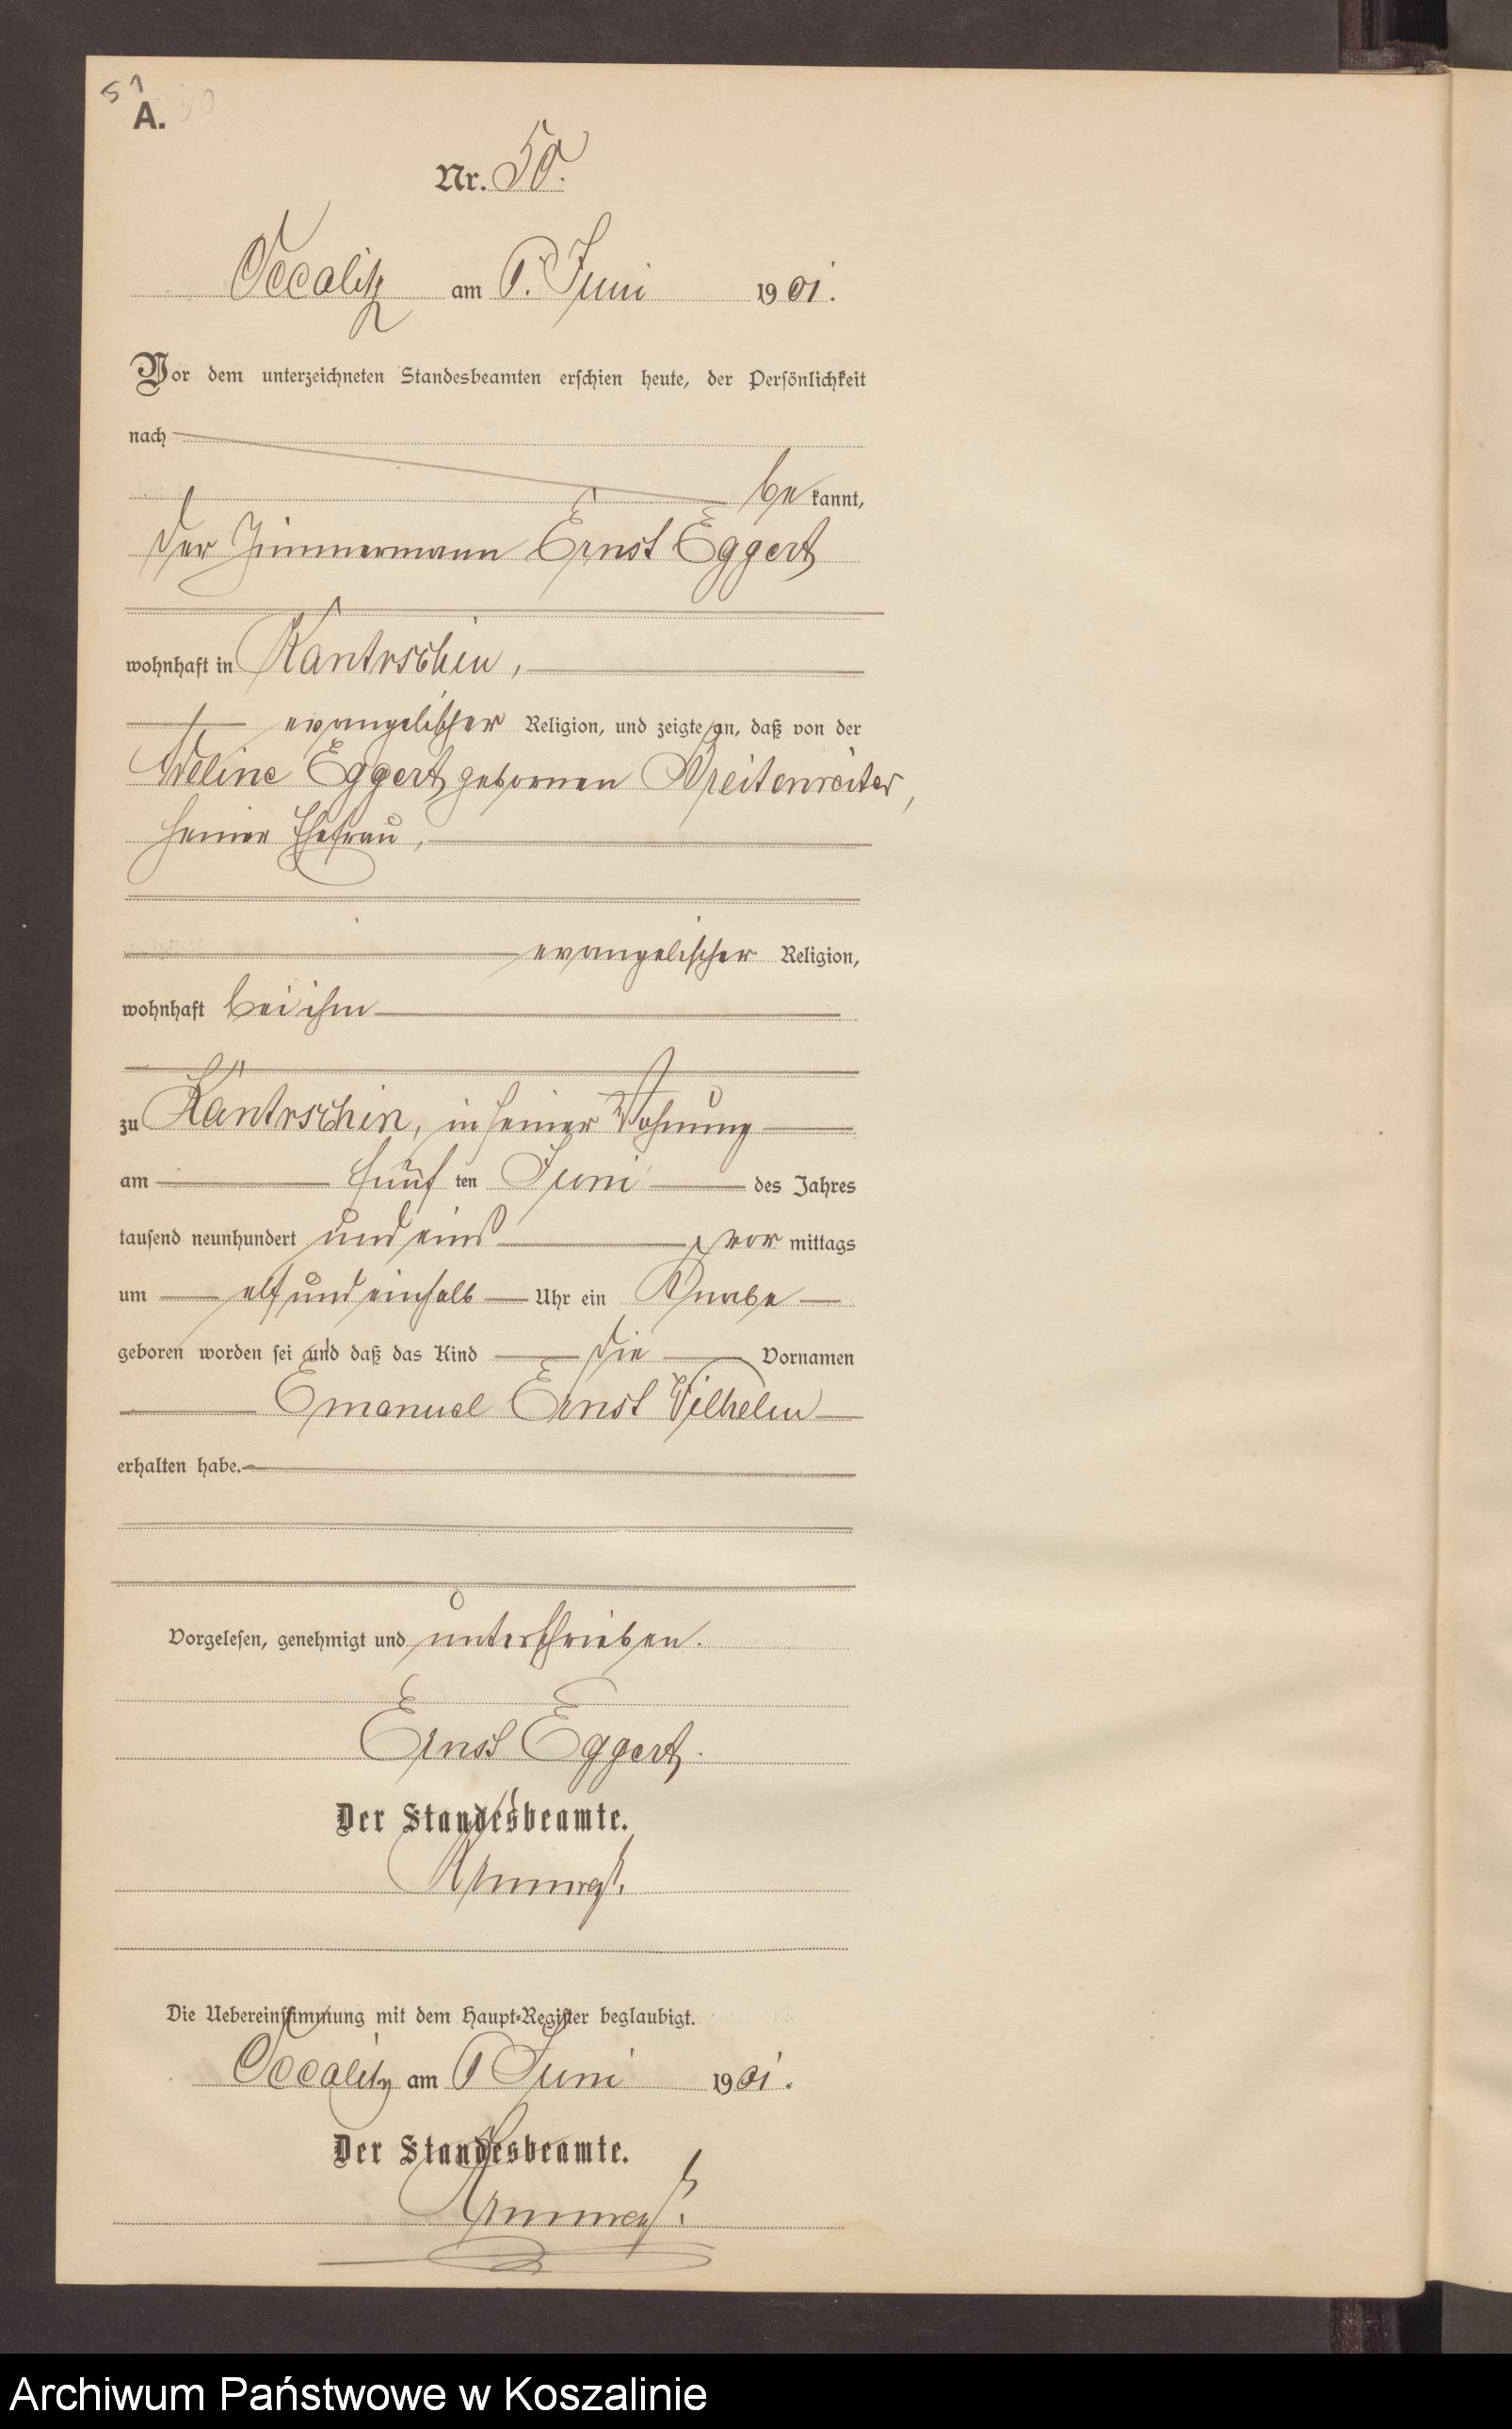 51
A. 50
Nr. 50.
Occalitz am 8. Juni 1901.
Vor dem unterzeichneten Standesbeamten erschien heute, der Persönlichkeit
nach
be kannt,
der Zimmermann Ernst Eggert
wohnhaft in Kantrschin,
evangelischer Religion, und zeigte an, daß von der
Adeline Eggert gebornen Breitenreiter,
seiner Ehefrau,
evangelischer Religion,
wohnhaft bei ihm
zu Kantrschin, in seiner Wohnung
am fünf ten Juni des Jahres
tausend neunhundert und eins vor mittags
um elf und einhalb Uhr ein Knabe
geboren worden sei und daß das Kind die Vornamen
Emanuel Ernst Wilhelm
erhalten habe.
Vorgelesen, genehmigt und unterschrieben.
Ernst Eggert.
Der Standesbeamte.
Die Uebereinstimmung mit dem Haupt-Register beglaubigt.
Occalitz am 8 Juni 1901.
Der Standesbeamte.
Archiwum Państwowe w Koszalinie